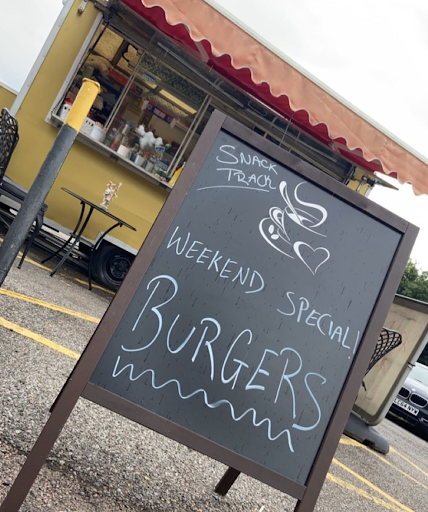 SNACK
TRACK
WEEKEND SPECIAL!
BURGERS